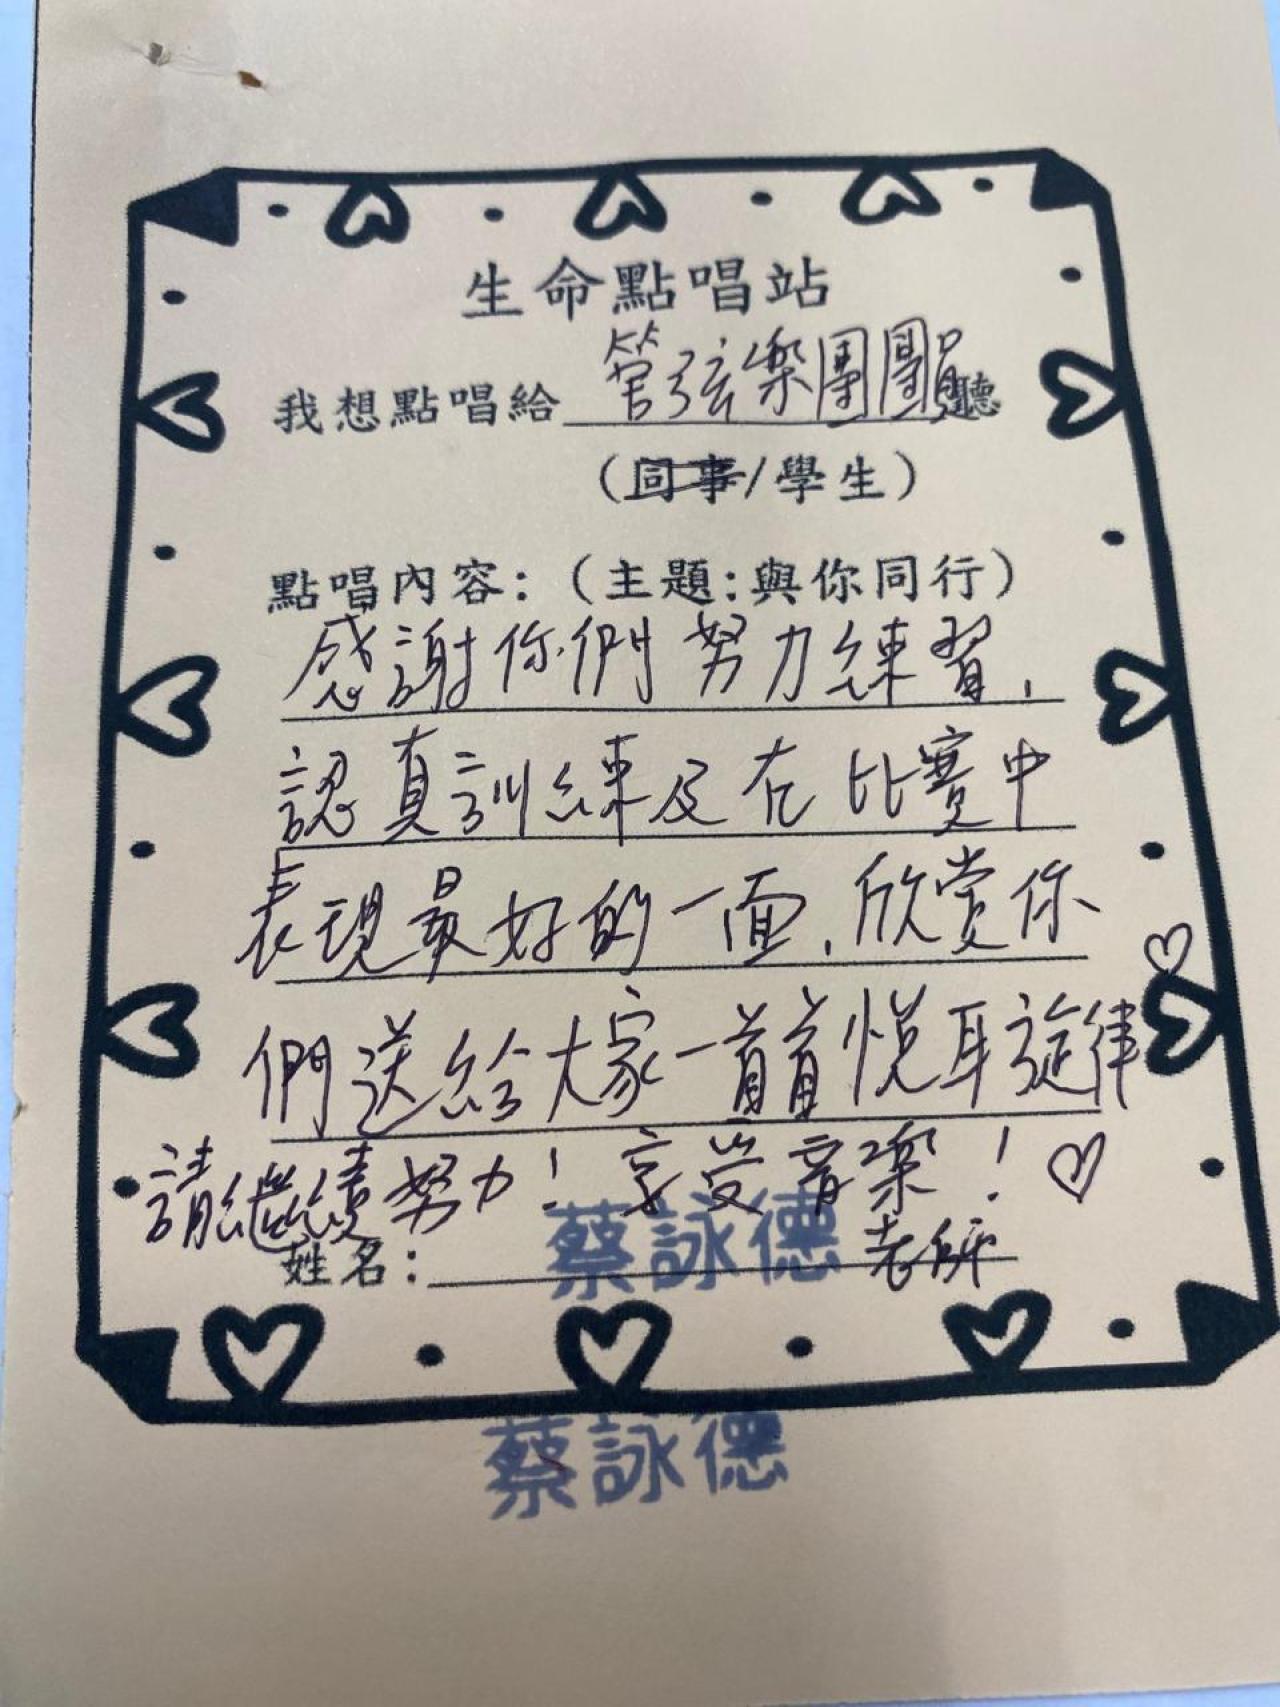 生命點唱站
我想點唱給管弦樂團團員聽
(同事/學生)
點唱內容:(主題:與你同行)
感謝你們努力練習,
認真訓練及在比賽中
表現最好的一面,欣賞你
們送給大家一首首悅耳旋律
請繼續努力!享受音樂!♡
姓名:蔡詠德老師
蔡詠德